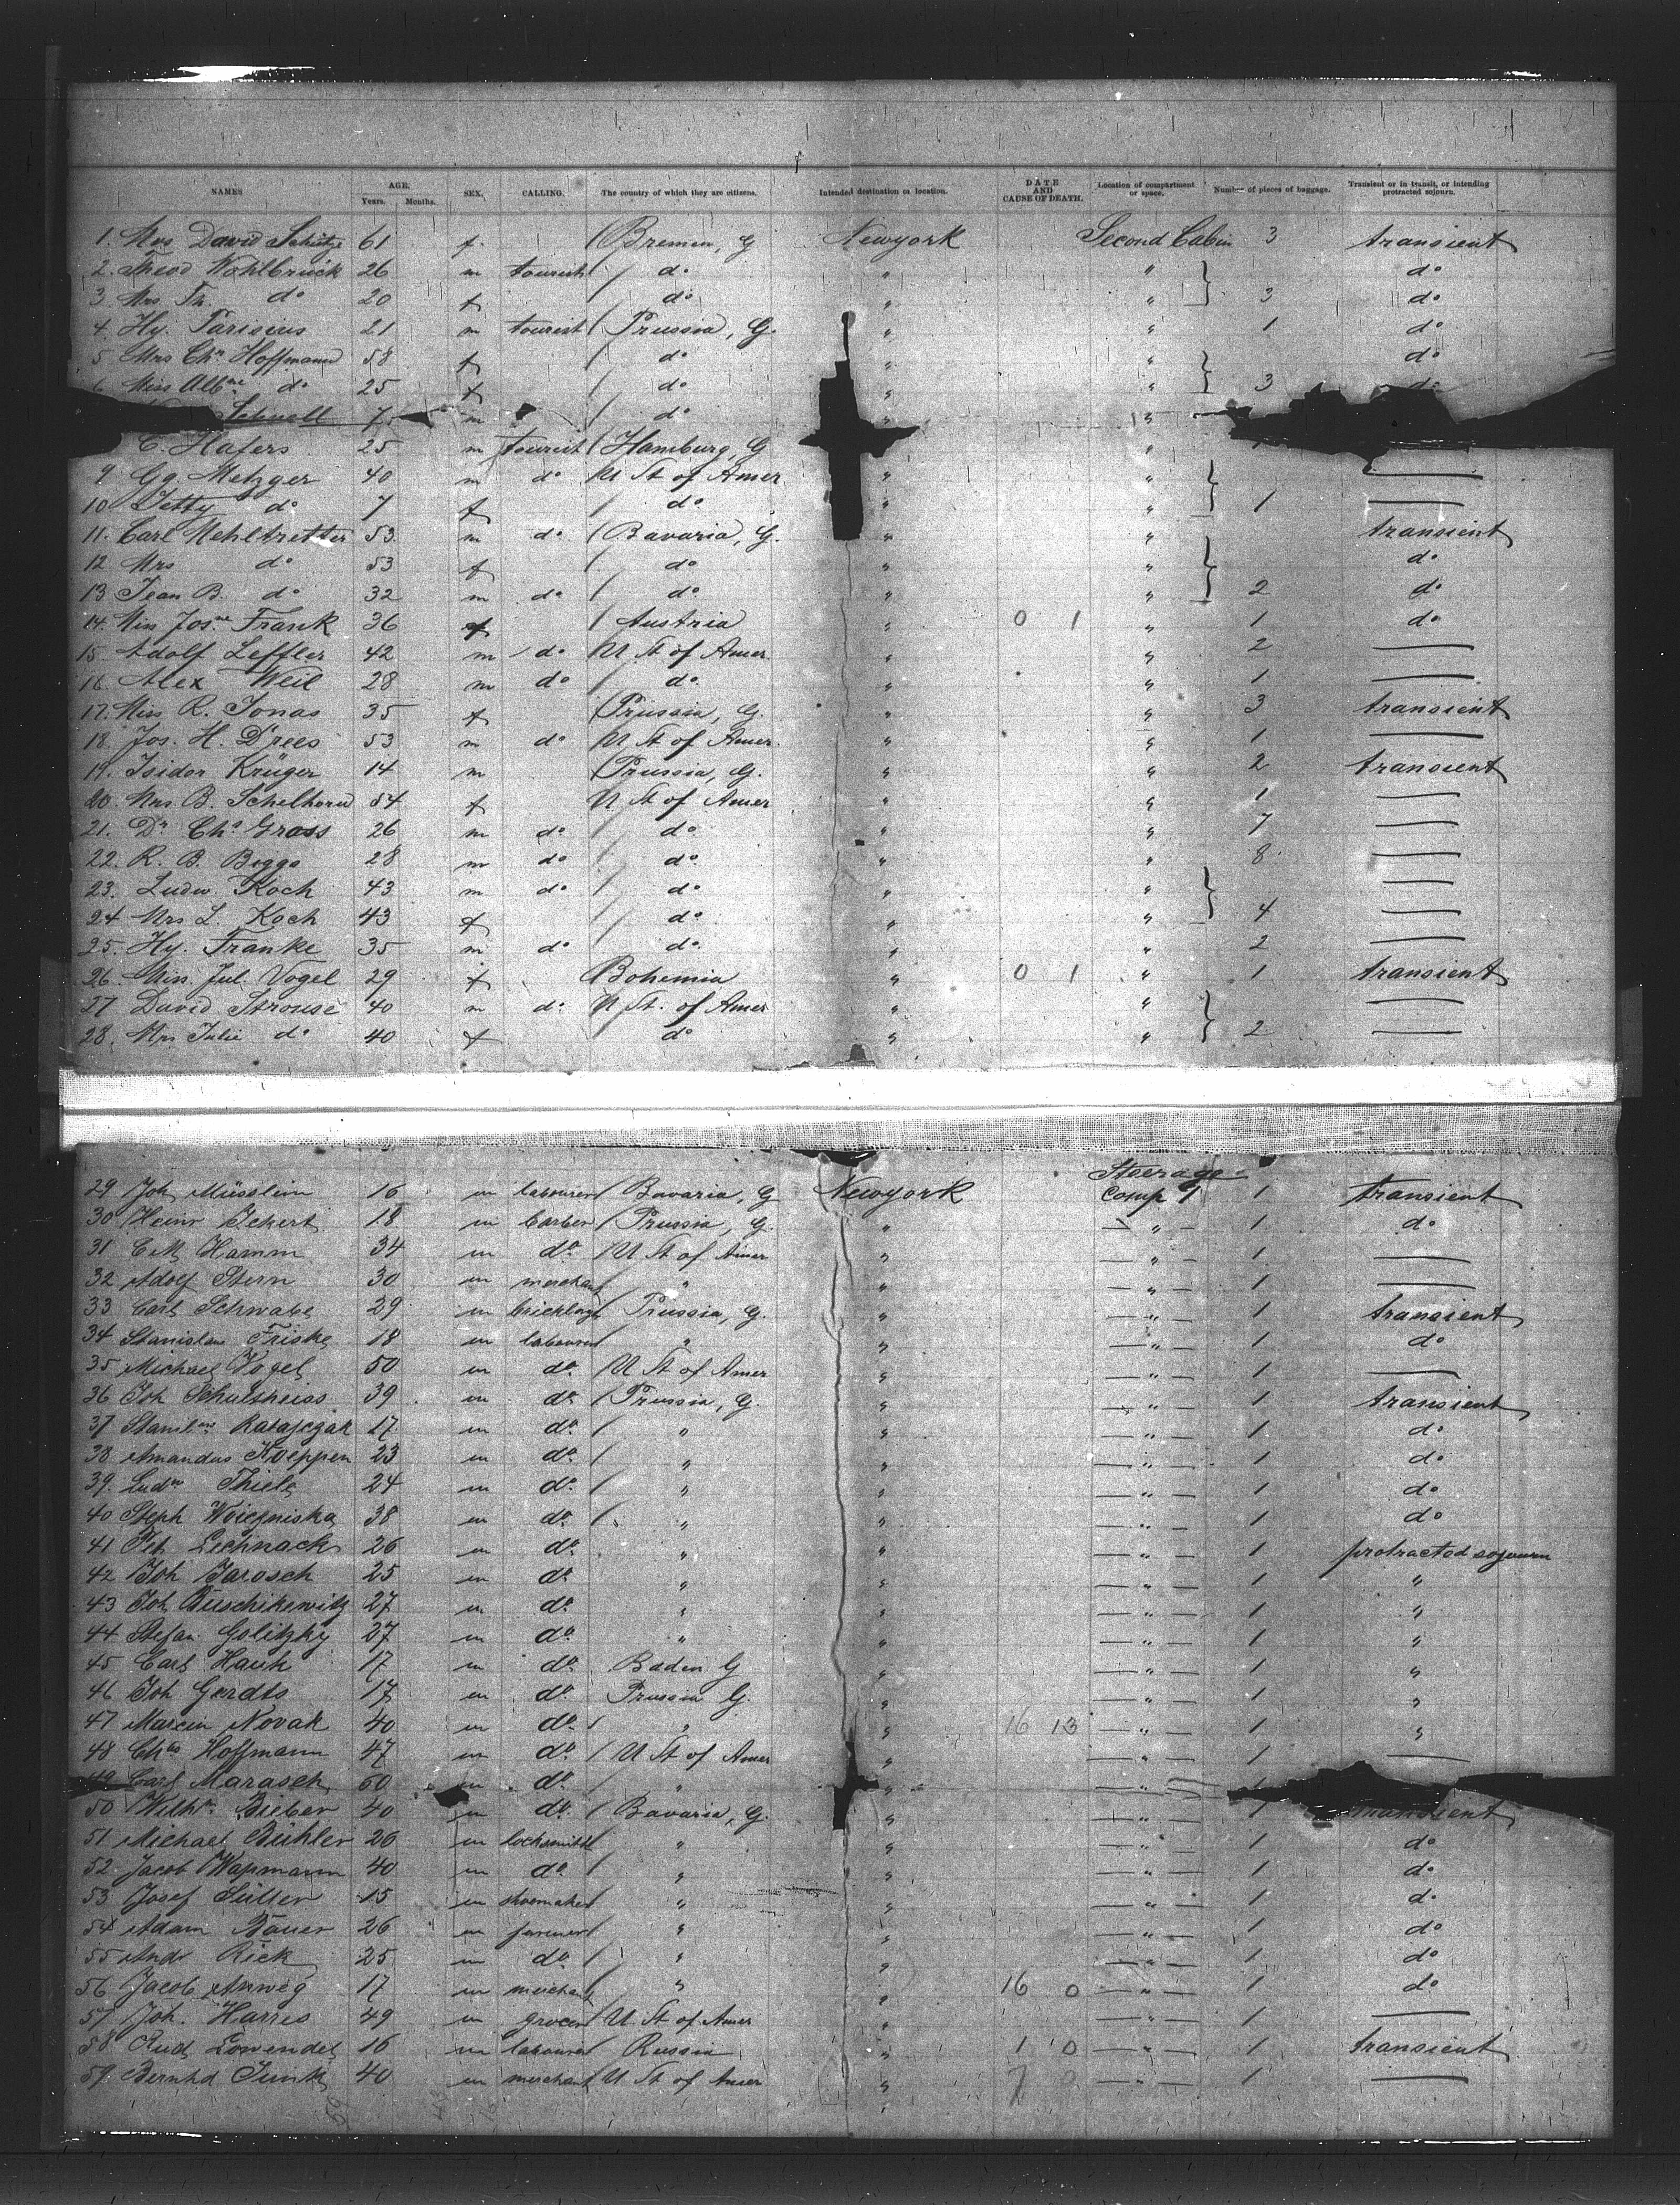 NAMES AGE. Years. Months. SEX. CALLING. The country of which they are citizens. Intended destination or location. DATE AND CAUSE OF DEATH. Location of compartment or space. Number of pieces of baggage. Transient or in transit, or intending protracted sojourn.
1. Mrs David Schütze 61 f. Bremen, G Newyork Second Cabin 3 transient
2. Theod Wohlbrück 26 m tourist do " " do
3. Mrs Th. do 20 f do " " 3 do
4. Hy. Parisius 21 m tourist Prussia, G. " " 1 do
5 Mrs Chr Hoffmann 58 f do " " do
6 Miss Albne do 25 f do " " 3 do
Schnell 75 m do "
C. Hafers 25 m tourist Hamburg, G "
9 Gg. Metzger 40 m do U St of Amer " " —
10 Jetty do 7 f do " " 1 —
11. Carl Mehltretter 53 m do Bavaria, G. " " transient
12 Mrs do 53 f do " " do
13 Jean B. do 32 m do do " " 2 do
14. Miss Josne Frank 36 f Austria " 0 1 " 1 do
15. Adolf Leffler 42 m do U St of Amer. " " 2 —
16 Alex Weil 28 m do do " " 1 —
17. Miss R. Jonas 35 f Prussia, G. " " 3 transient
18. Jos. H. Drees 53 m do U St of Amer. " " 1 —
19. Isidor Krüger 14 m Prussia, G. " " 2 transient
20. Mrs B. Schelhorn 54 f U St of Amer " " 1 —
21. Dr Chs Gross 26 m do do " " 7 —
22. R. B. Boggs 28 m do do " " 8 —
23. Ludw Koch 43 m do do " " —
24 Mrs L. Koch 43 f do " " 4 —
25. Hy. Franke 35 m do do " " 2 —
26. Miss Jul. Vogel 29 f Bohemia " 0 1 " 1 transient
27 David Strouse 40 m do U St. of Amer " " —
28. Mrs Julie do 40 f do " " 2 —
Steerage
29 Joh Müsslein 16 m labourer Bavaria, G Newyork Comp 1 1 transient
30 Heinr Eckert 18 m barber Prussia, G. " — " — 1 do
31 C M Hamm 34 m do U St of Amer " — " — 1 —
32 Adolf Stern 30 m merchant " " — " — 1 —
33 Carl Schwabe 29 m bricklayer Prussia, G. " — " — 1 transient
34 Stanislaw Friske 18 m labourer " " — " — 1 do
35 Michael Vogel 50 m do U St of Amer " — " — 1 —
36 Joh Schultheiss 39 m do Prussia, G. " — " — 1 transient
37 Ratajczak 17 m do " " — " — 1 do
38 Amandus Koeppen 23 m do " " — " — 1 do
39. Ludw Thiele 24 m do " " — " — 1 do
40 Steph 38 m do " " — " — 1 do
41 Lechnack 26 m do " " — " — 1 protracted sojourn
42 Joh Jarosch 25 m do " " — " — 1 "
43 Joh Buschikewitz 27 m do " " — " — 1 "
44 Stefan Golitzky 27 m do " " — " — 1 "
45 Carl Hauk 17 m do Baden G " — " — 1 "
46 Joh Gerdts 17 m do Prussia G. " — " — 1 "
47 Marcin Novak 40 m do " " 16 13 — " — 1 "
48 Chas Hoffmann 47 m do U St of Amer " — " — 1 —
49 Carl Marasch 60 m do " " — " —
50 Wilhm Bieber 40 m do Bavaria, G. " — " — 1 transient
51 Michael Bühler 26 m locksmith " " — " — 1 do
52 Jacob Wapmann 40 m do " " — " — 1 do
53 Josef Sutter 15 m shoemaker " " — " — 1 do
54 Adam Bauer 26 m farmer " " — " — 1 do
55 Andr Rick 25 m do " " — " — 1 do
56 Jacob Anweg 17 m merchant " " 16 0 — " — 1 do
57 Joh. Harres 49 m grocer U St of Amer " — " — 1 —
58 Rud Lowendel 16 m labourer Russia " 1 0 — " — 1 transient
59 Bernhd Funk 40 m merchant U St of Amer " — " — 1 —